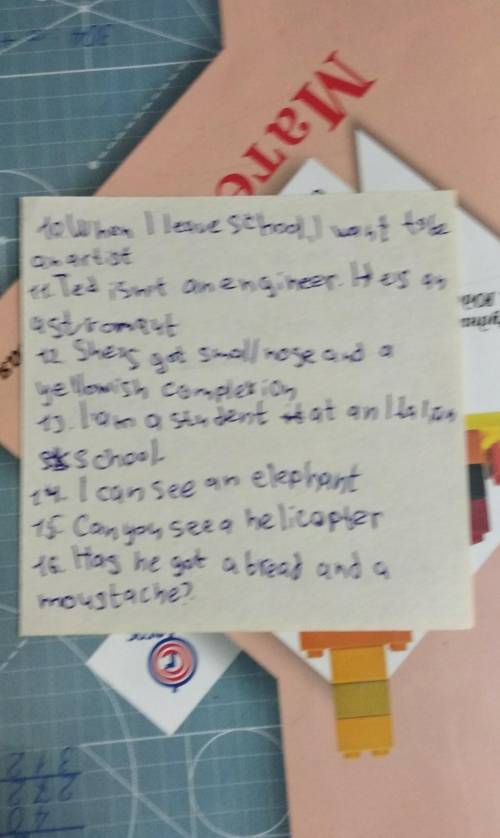 304
Мате
10 When I leave school, I want to be
an artist
11. Ted isn't an engineer. He's an
astronaut
12. She's got small nose and a
yellowish complexion
13. I am a student at an Italian
school
14. I can see an elephant
15. Can you see a helicopter
16. Has he got a bread and a
moustache?
312
272
40